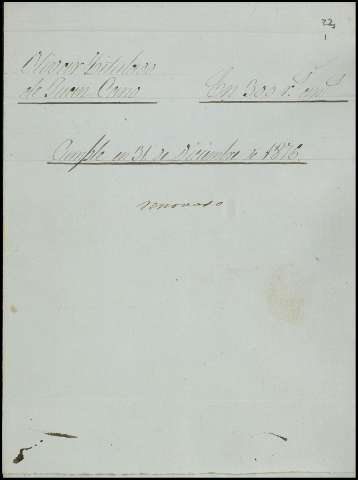 22
1
Olivar titulado
de Juan Cano
En 300 r.s anul
Cumple en 31 de Diciembre de 1876.
renovado